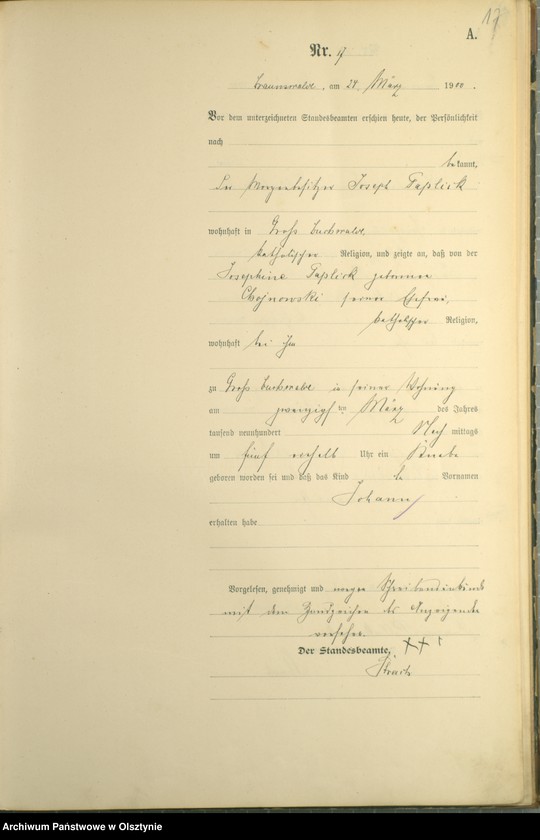 17
A.
Nr. 17
Braunswalde, am 24. März 1900.
Vor dem unterzeichneten Standesbeamten erschien heute, der Persönlichkeit
nach
bekannt,
Joseph Taplick
wohnhaft in Groß Buchwalde,
katholischer Religion, und zeigte an, daß von der
Josephine Taplick geborene
Chojnowski seiner Ehefrau,
katholischer Religion,
wohnhaft bei ihm
zu Groß Buchwalde in seiner Wohnung
am zwanzigsten März des Jahres
tausend neunhundert Nachmittags
um fünf einhalb Uhr ein Knabe
geboren worden sei und daß das Kind Vornamen
Johann
erhalten habe
Vorgelesen, genehmigt und wegen Schreibensunkunde
mit dem Handzeichen des Anzeigenden
versehen.
+++
Der Standesbeamte,
Archiwum Państwowe w Olsztynie